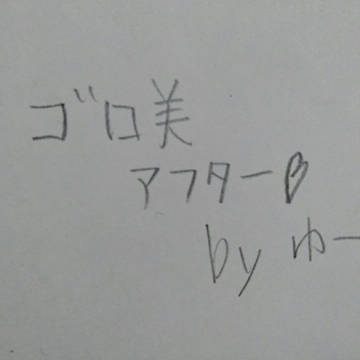 ゴロ美
アフターβ
by ゆー